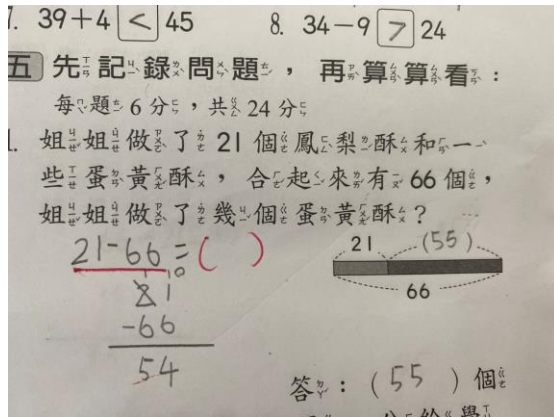 7. 39+4 < 45 8. 34−9 > 24
五 先記錄問題，再算算看：
每題6分，共24分
1. 姐姐做了21個鳳梨酥和一
些蛋黃酥，合起來有66個，
姐姐做了幾個蛋黃酥？
21-66=( )
21 (55)
66
21
-66
54
答：(55)個